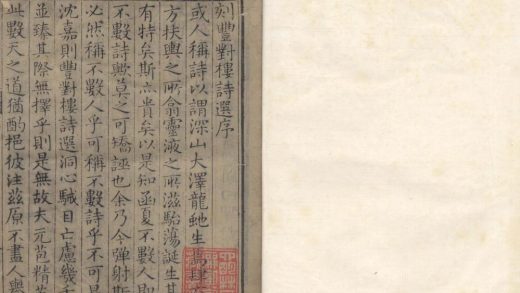 刻豐對樓詩選序
或人稱詩以謂深山大澤龍虵生焉肆
方扶輿之所翕靈液之所滋駘蕩誕生其
有特矣斯貴矣以是知函夏不數人即
不數詩歟莫之可矯誣也余乃今弹射斯
必然稱不數人乎可稱不數詩乎不可是
沈嘉則豐對樓詩選洞心駴目亡慮幾
並臻其際無擇乎則是無故夫元苞精
此數天之道猶酌挹彼注茲原不盡人與